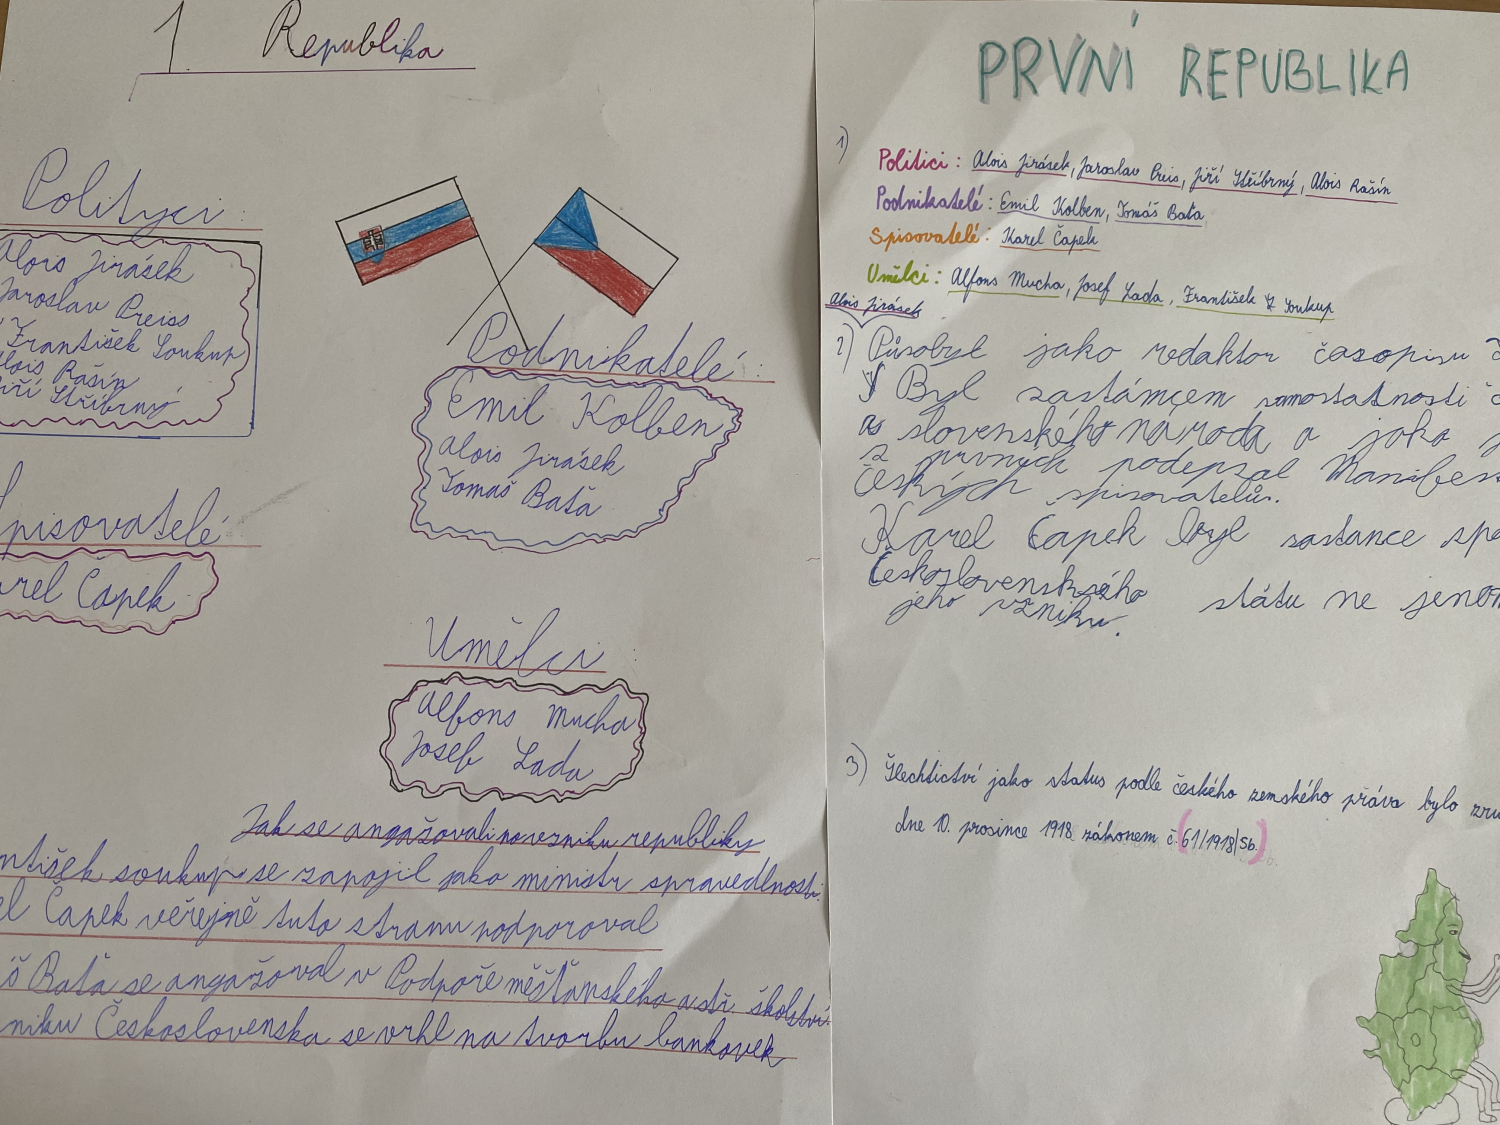 1. Republika
Polityci:
Alois Jirásek
Jaroslav Preiss
František Soukup
Alois Rašín
Jiří Stříbrný
Podnikatelé:
Emil Kolben
Alois Jirásek
Tomaš Batǎ
Spisovatelé
rel Čapek
Umělci:
Alfons Mucha
Josef Lada
Jak se angažovali na vzniku republiky
ntišek soukup se zapojil jako ministr spravedlnosti.
el Čapek veřejně tuto stranu podporoval
š Batǎ se angažoval v Podpoře měšťanského a stř. školství.
niku Československa se vrhl na tvorbu bankovek
PRVNÍ REPUBLIKA
1)
Politici: Alois Jirásek, Jaroslav Preis, Jiří Stříbrný, Alois Rašín
Podnikatelé: Emil Kolben, Tomáš Baťa
Spisovatelé: Karel Čapek
Umělci: Alfons Mucha, Josef Lada, František Soukup
Alois Jirásek
2) Působyl jako redaktor časopisu
Byl zastámcem samostatnosti č
slovenského národa a jako j
z prvných podepzal Manifes
českých spisovatelů.
Karel Čapek byl zastance spo
Československého státu ne jenom
jeho vzniku.
3) Šlechtictví jako status podle českého zemského práva bylo zru
dne 10. prosince 1918 zákonem č. (61/1918/Sb.)